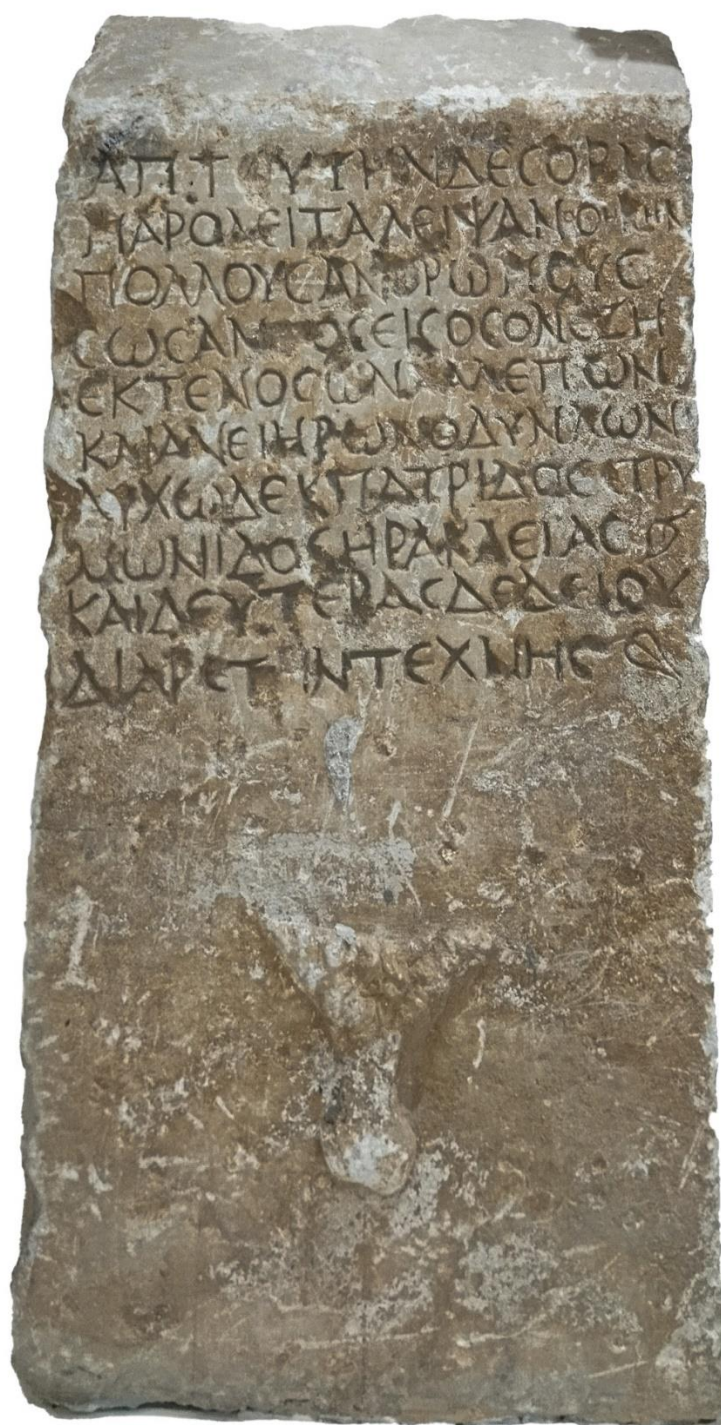 ΑΠ.Τ ΟΥΤΗΝΔΕCΟΡΙC
ΜΑΡΩΛΕΙΤΑΛΕΙΨΑΝΟΘΗΚΗΝ
ΠΟΛΛΟΥCΑΝΘΡΩΠΟΥC
CΩCΑΝΤΟCΕΙCΟCΟΝΕΖΗ
ΕΚΤΕΝΟCΩΝΧΑΛΕΠΩΝ
ΚΑΙΑΝΕΙΗΡΩΝΟΔΥΝΑΩΝ
ΑΥΧΕΩΔΕΚΠΑΤΡΙΔΟCCΤΡΥ
ΜΩΝΙΔΟCΗΡΑΚΛΕΙΑC
ΚΑΙΔΕΥΤΕΡΑCΔΕΔΕΙΟΥ
ΔΙΑΡΕΤΗΝΤΕΧΝΗC